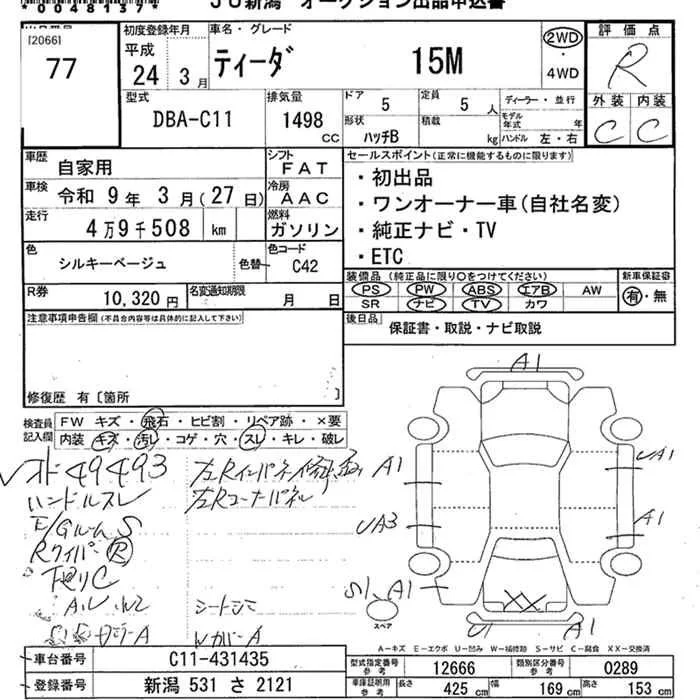 *0048137*
JU新潟 オークション出品申込書
[2066]
77
初度登録年月
平成
24 3月
車名・グレード
ティーダ 15M
2WD
・
4WD
評価点
R
外装 内装
C C
型式
DBA-C11
排気量
1498
CC
ドア 5
定員 5 人
形状 ハッチB
積載 kg
ディーラー・並行
モデル年式 年
ハンドル 左・右
車歴
自家用
シフト
FAT
車検 令和 9年 3月(27日)
冷房
AAC
走行 4万9千508 km
燃料
ガソリン
色
シルキーベージュ
色替
色コード
C42
R券 10,320円
名変通知期限 月 日
セールスポイント(正常に機能するものに限ります)
・初出品
・ワンオーナー車(自社名変)
・純正ナビ・TV
・ETC
装備品(純正品に限り○をつけてください)
PS PW ABS エアB AW
SR ナビ TV カワ
新車保証書
有・無
後日品 保証書・取説・ナビ取説
注意事項申告欄(不具合内容等は具体的に記入して下さい)
修復歴 有〔箇所 〕
検査員記入欄
FW キズ・飛石・ヒビ割・リペア跡・×要
内装 キズ・汚レ・コゲ・穴・スレ・キレ・破レ
49493
ハンドルスレ
E/Gルーム S
Rワイパー R
下廻リC
シートシミ
左Rコーナーパネル
A1
A1
UA1
UA3
A1
S1、A1
XX
U1 A1
スペア
A-キズ E-エクボ U-凹み W-補修跡 S-サビ C-腐食 XX-交換済
車台番号 C11-431435
型式指定番号 参考 12666
類別区分番号 参考 0289
登録番号 新潟 531 さ 2121
車庫証明用 参考 長さ 425 cm 幅 169 cm 高さ 153 cm